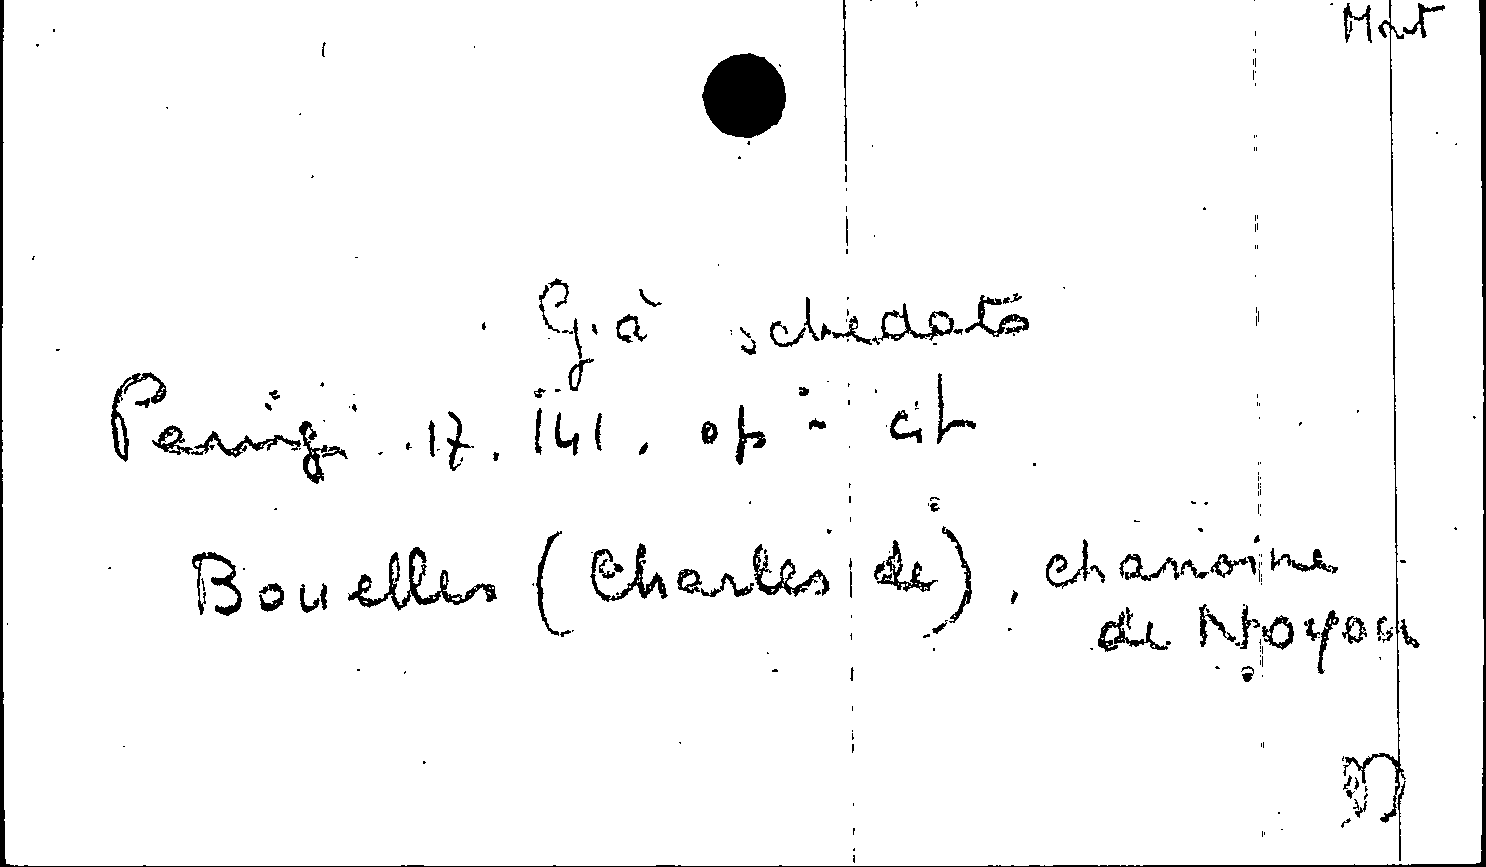 Mont
Già schedato
Perugi 17. 141. op. cit
Bouelles (Charles de), chanoine
de Noyon